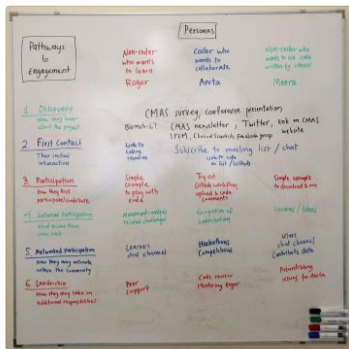 Personas
Pathways
to
Engagement
Non-coder
who wants
to learn
Roger
Coder who
wants to
collaborate
Anita
Non-coder who
wants to use code
written by others
Meera
1 Discovery
How they hear
about the project
CMAS survey, conference presentation
CMAS newsletter, Twitter, link on CMAS
website
IPEM, Clinical Scientists Facebook group
2 First Contact
Their initial
interaction
Link to
Subscribe to mailing list / chat
3 Participation
How they first
participate/contribute
Simple
example
to play with
code
Try out
GitHub workflow,
upload code
comments
Simple example
to download & run
4 Sustained Participation
Recognition of
contribution
5 Networked Participation
How they may network
within the community
Learners
chat channel
Hackathons
Competitions
Users
chat channel
Contribute data
6 Leadership
How they may take on
additional responsibilities
Peer
support
Code review
Mentoring Roger
Prioritising
issues for Anita